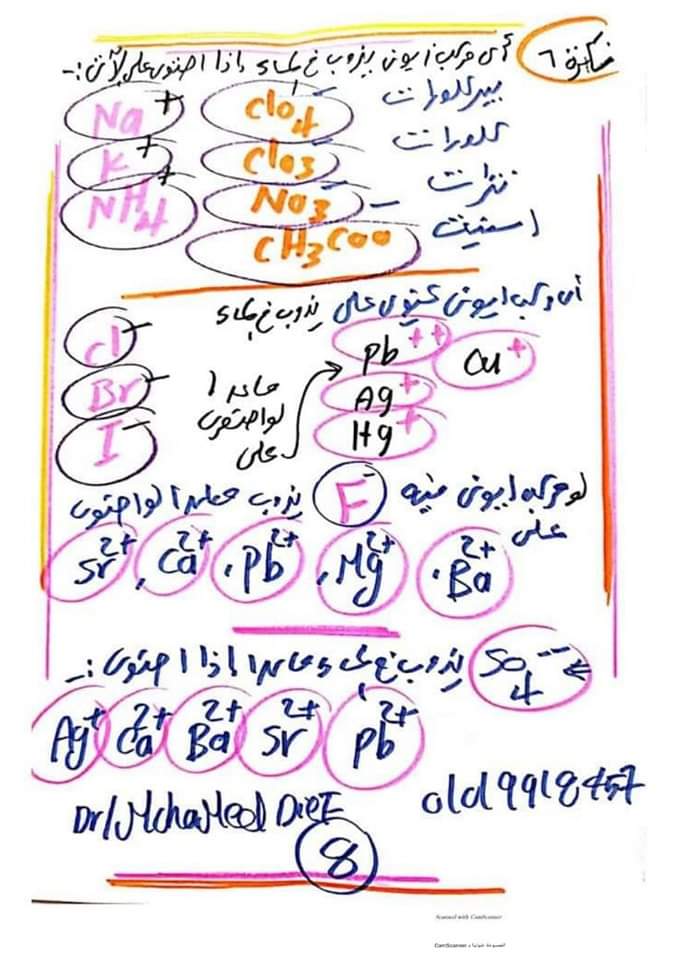 فكرة ٦ أى مركب أيونى يذوب فى الماء إذا احتوى على الآتى :-
Na+ ClO4- بيركلورات
K+ ClO3- كلورات
NH4+ NO3- نترات
CH3COO- اسيتيت
أى مركب أيونى يحتوى على يذوب فى الماء
Cl- Pb++ Cu+
Br- ماعدا Ag+
I- لو احتوى على Hg+
لو مركب أيونى فيه F- يذوب ماعدا لو احتوى
على
Sr2+ , Ca2+ , Pb2+ , Mg2+ , Ba2+
SO4-- يذوب فى الماء ماعدا إذا احتوى :-
Ag+ Ca2+ Ba2+ Sr2+ Pb2+
Dr/Mohamed
8
Scanned with CamScanner
CamScanner